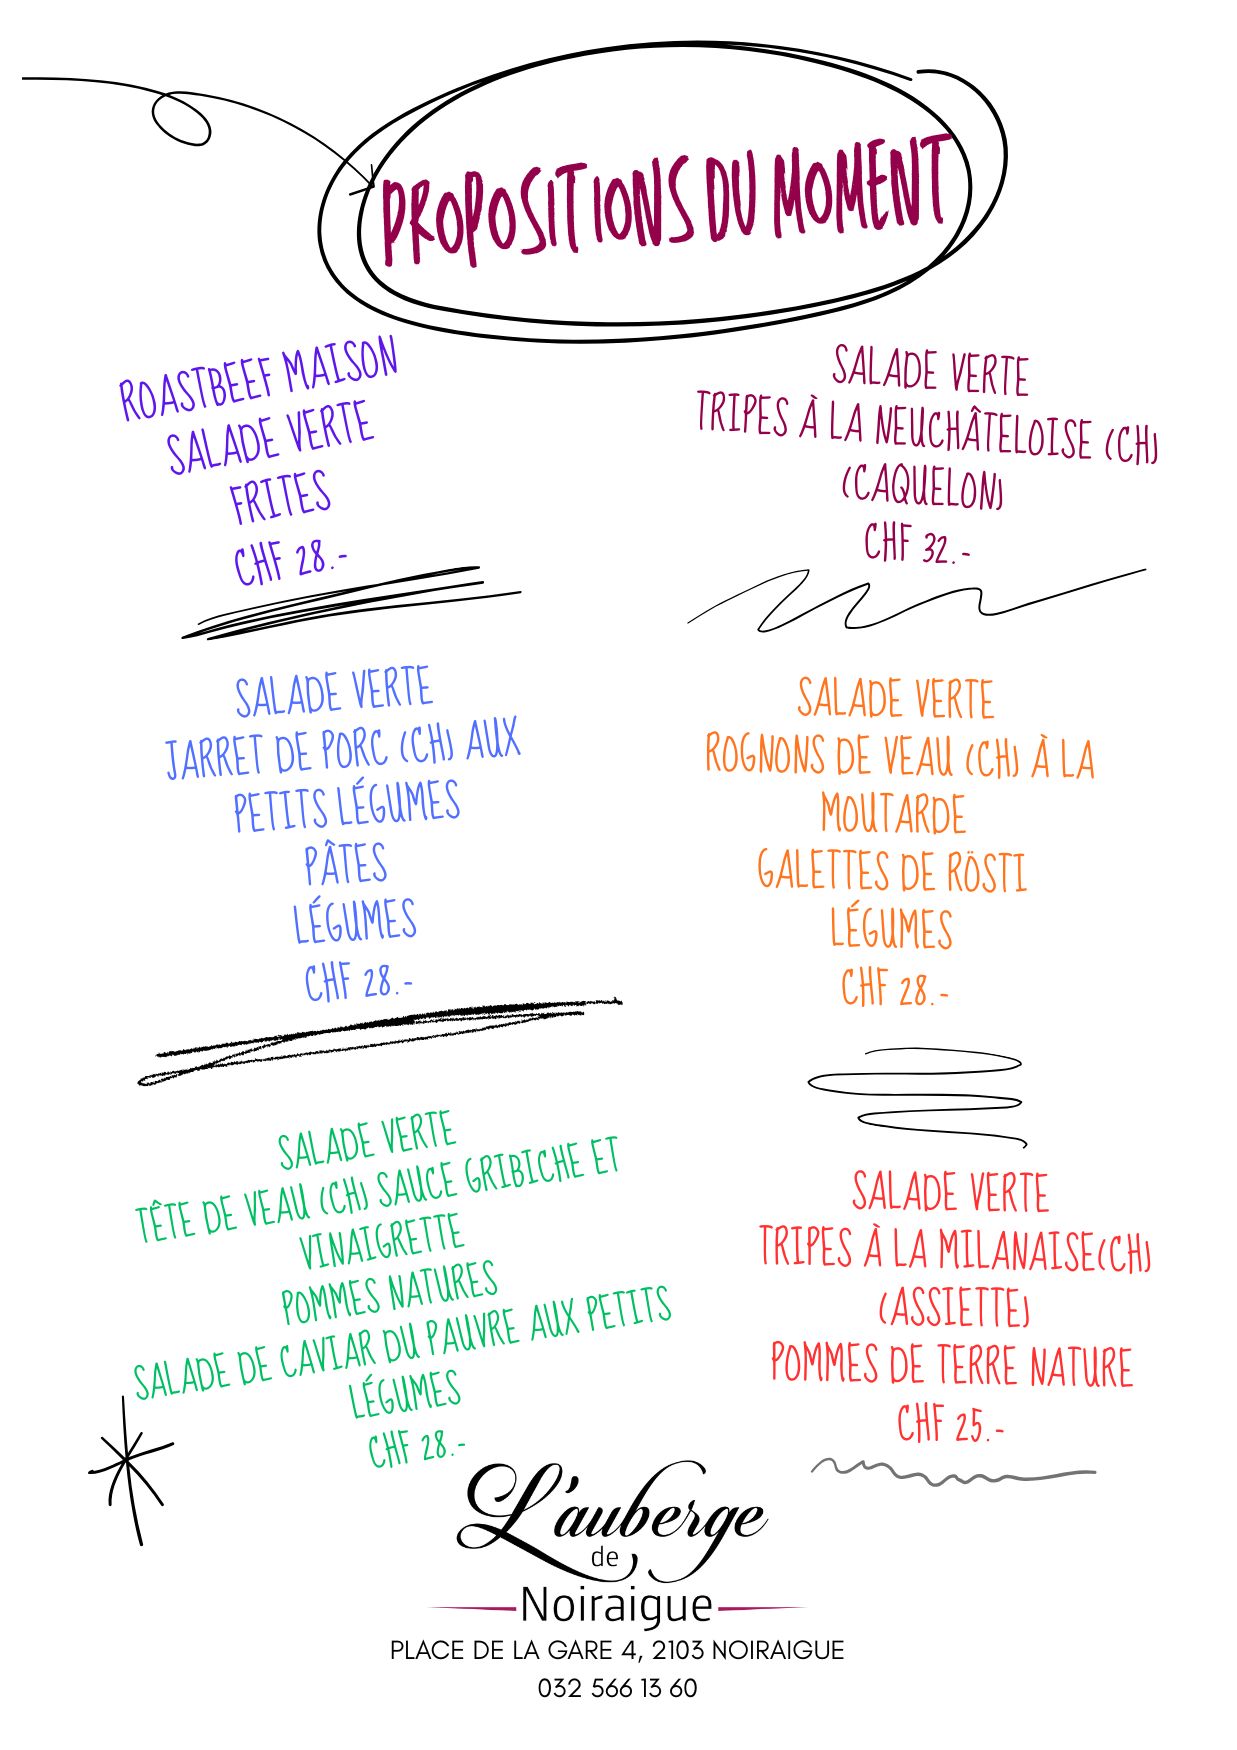 PROPOSITIONS DU MOMENT
ROASTBEEF MAISON
SALADE VERTE
FRITES
CHF 28.-
SALADE VERTE
TRIPES À LA NEUCHÂTELOISE (CH)
(CAQUELON)
CHF 32.-
SALADE VERTE
JARRET DE PORC (CH) AUX
PETITS LÉGUMES
PÂTES
LÉGUMES
CHF 28.-
SALADE VERTE
ROGNONS DE VEAU (CH) À LA
MOUTARDE
GALETTES DE RÖSTI
LÉGUMES
CHF 28.-
SALADE VERTE
TÊTE DE VEAU (CH) SAUCE GRIBICHE ET
VINAIGRETTE
POMMES NATURES
SALADE DE CAVIAR DU PAUVRE AUX PETITS
LÉGUMES
CHF 28.-
SALADE VERTE
TRIPES À LA MILANAISE(CH)
(ASSIETTE)
POMMES DE TERRE NATURE
CHF 25.-
L'auberge
de
Noiraigue
PLACE DE LA GARE 4, 2103 NOIRAIGUE
032 566 13 60